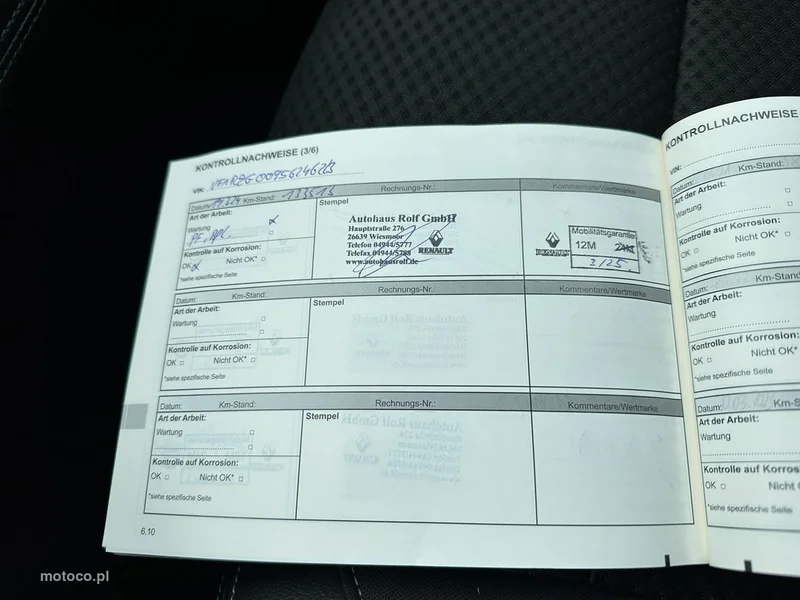 KONTROLLNACHWEISE (3/6)
VIN:
Datum: Km-Stand: 133513 Rechnungs-Nr.: Kommentare/Wertmarke
Art der Arbeit:
Wartung
Kontrolle auf Korrosion:
OK Nicht OK*
*siehe spezifische Seite
Stempel
Autohaus Rolf GmbH
Hauptstraße 276
26639 Wiesmoor
Telefon 04944/5777
Telefax 04944/5788
www.autohausrolf.de
RENAULT
Mobilitätsgarantie
12M 24M
2/25
Datum: Km-Stand: Rechnungs-Nr.: Kommentare/Wertmarke
Art der Arbeit:
Wartung
Kontrolle auf Korrosion:
OK Nicht OK*
*siehe spezifische Seite
Stempel
Datum: Km-Stand: Rechnungs-Nr.: Kommentare/Wertmarke
Art der Arbeit:
Wartung
Kontrolle auf Korrosion:
OK Nicht OK*
*siehe spezifische Seite
Stempel
6.10
KONTROLLNACHWEISE
VIN:
Datum: Km-Stand:
Art der Arbeit:
Wartung
Kontrolle auf Korrosion:
OK Nicht OK*
*siehe spezifische Seite
Datum: Km-Stand:
Art der Arbeit:
Wartung
Kontrolle auf Korrosion:
OK Nicht OK*
*siehe spezifische Seite
Datum: Km-S
Art der Arbeit:
Wartung
Kontrolle auf Korros
OK Nicht
*siehe spezifische Seite
motoco.pl